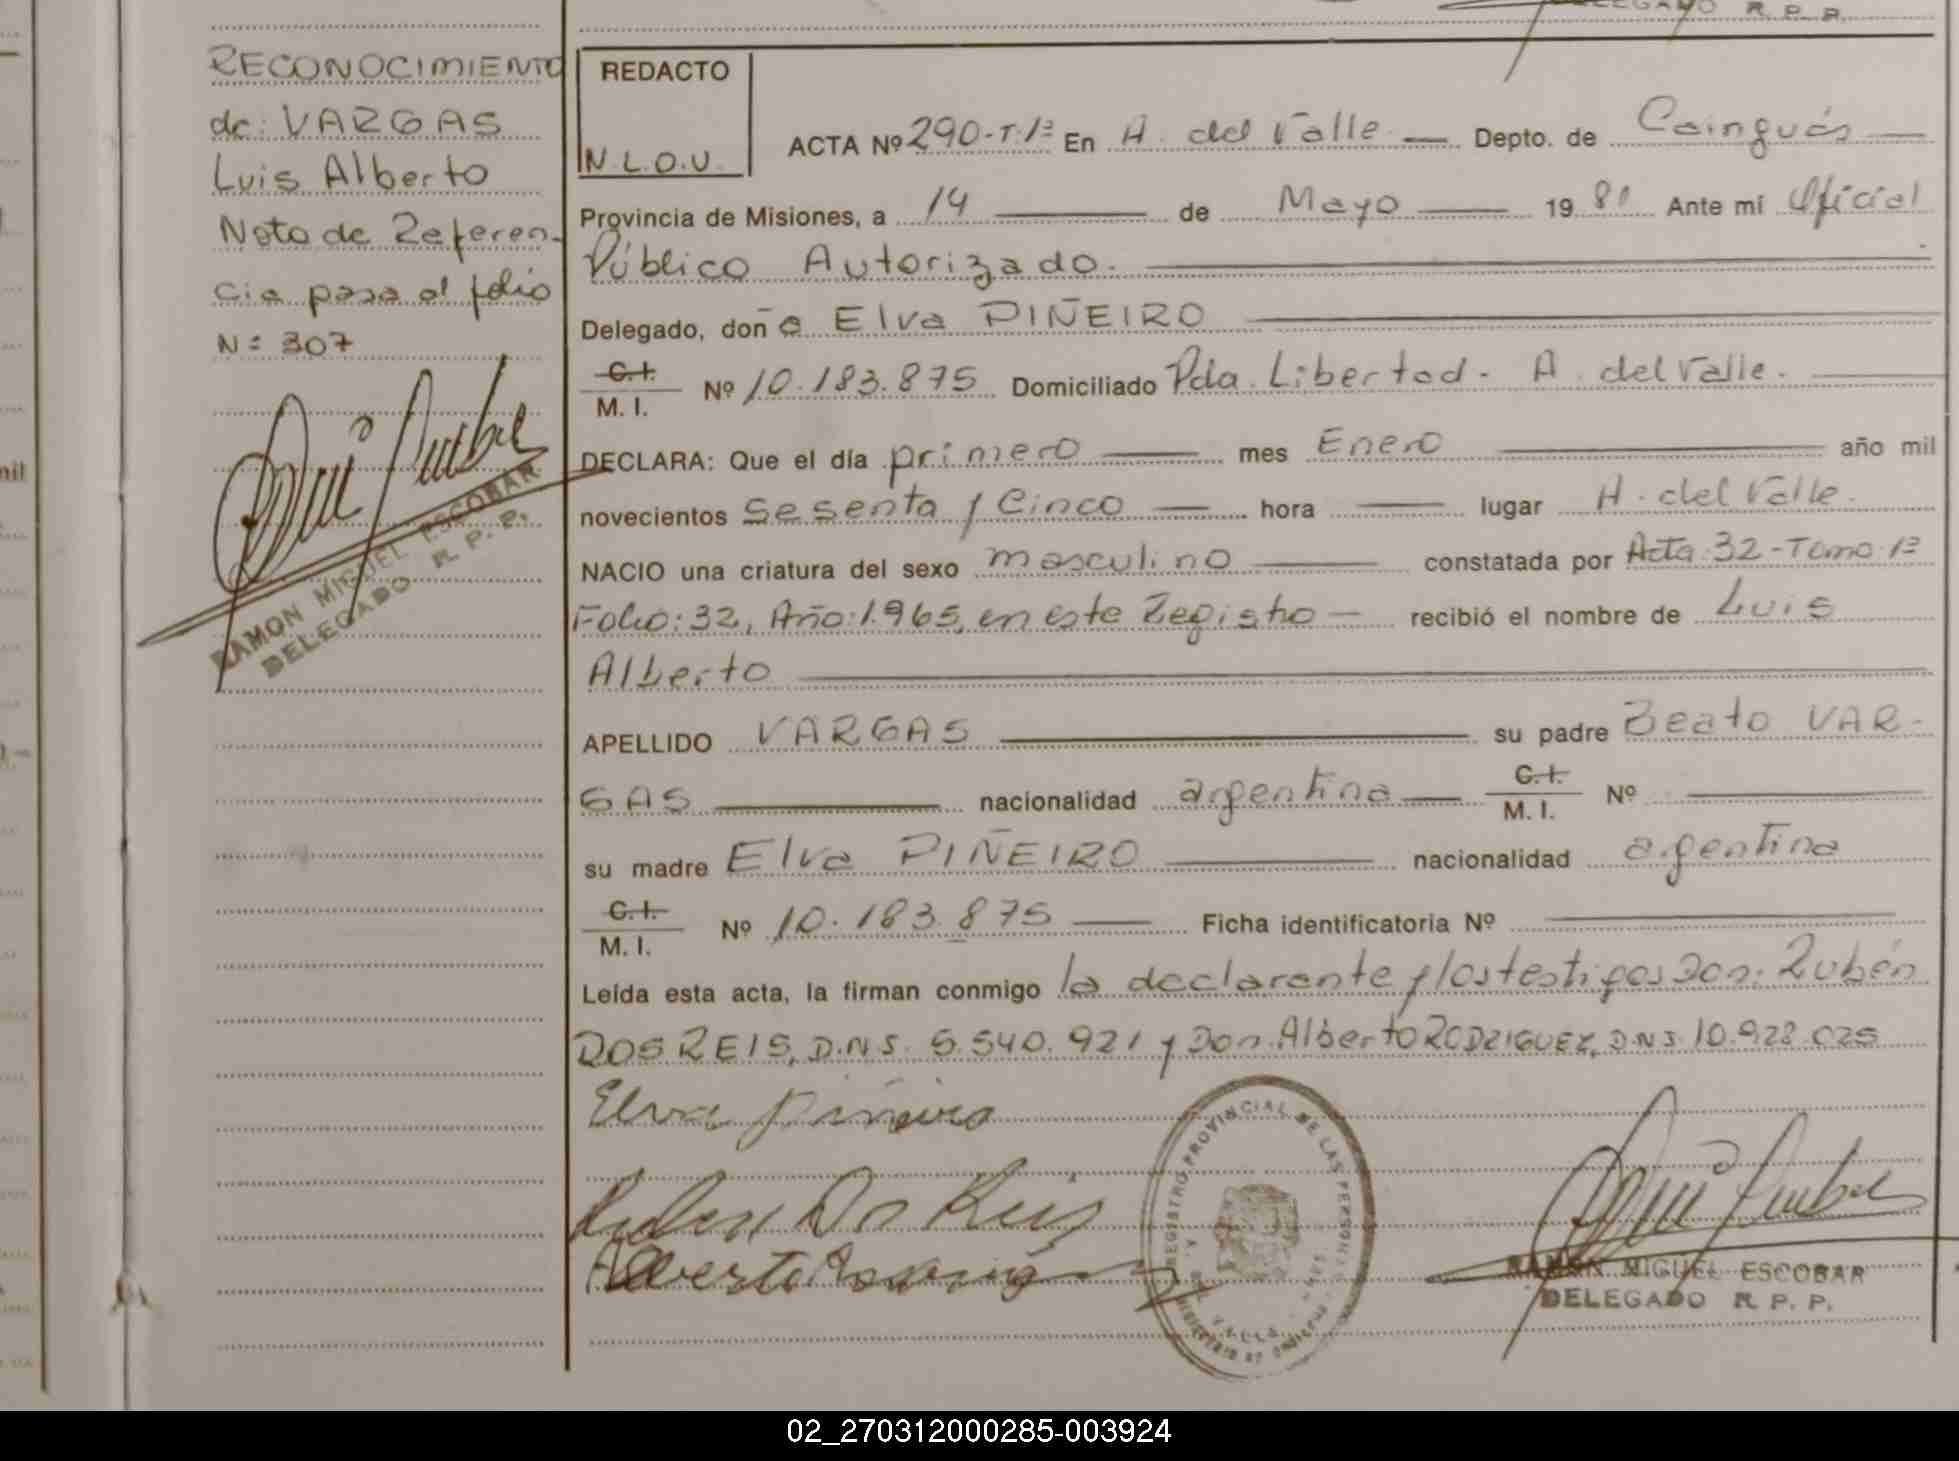 RECONOCIMIENTO
de: VARGAS
Luis Alberto
Nota de Referen-
cia pasa al folio
N: 307
RAMON MIGUEL ESCOBAR
DELEGADO R. P. P.
DELEGADO R. P. P.
REDACTO
N.L.O.U.
ACTA Nº 290-T:1º En A. del Valle Depto. de Cainguás
Provincia de Misiones, a 14 de Mayo 1981 Ante mi Oficial
Público Autorizado.
Delegado, doña Elva PIÑEIRO
C.I.
M. I. Nº 10.183.875 Domiciliado Pda. Libertad - A. del Valle.
DECLARA: Que el día primero mes Enero año mil
novecientos sesenta y Cinco hora lugar A. del Valle.
NACIO una criatura del sexo masculino constatada por Acta: 32-Tomo 1º
Folio: 32, Año: 1.965, en este Registro recibió el nombre de Luis
Alberto
APELLIDO VARGAS su padre Beato VAR-
GAS nacionalidad argentina C.I. M. I. Nº
su madre Elva PIÑEIRO nacionalidad argentina
C.I.
M. I. Nº 10.183.875 Ficha identificatoria Nº
Leída esta acta, la firman conmigo la declarante y los testigos Don: Rubén
DOS REIS, D.N.I. 5.540.921 y Don Alberto RODRIGUEZ, D.N.I. 10.928.025
Elva piñeiro
Ruben Dos Reis
Alberto Rodriguez
REGISTRO PROVINCIAL DE LAS PERSONAS
RAMON MIGUEL ESCOBAR
DELEGADO R. P. P.
02_270312000285-003924